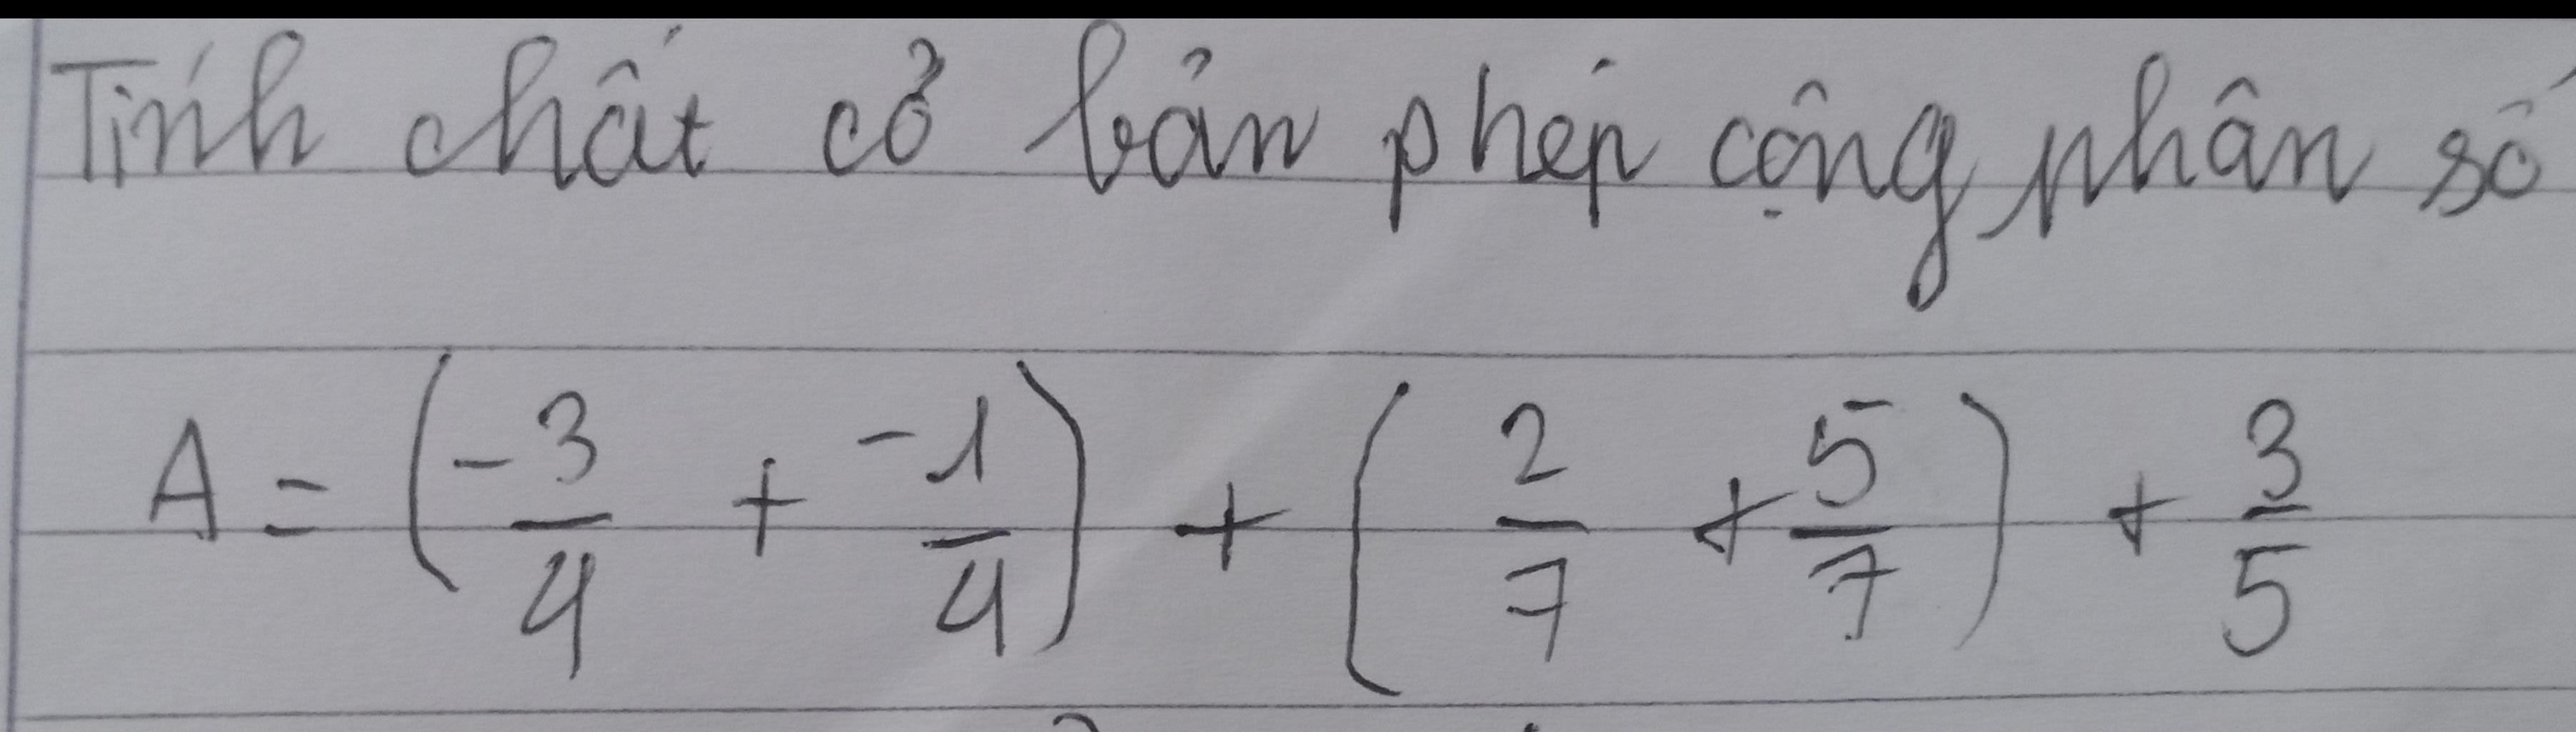 Tính chất cở bản phép cộng phân số
A = (-3/4 + -1/4) + (2/7 + 5/7) + 3/5